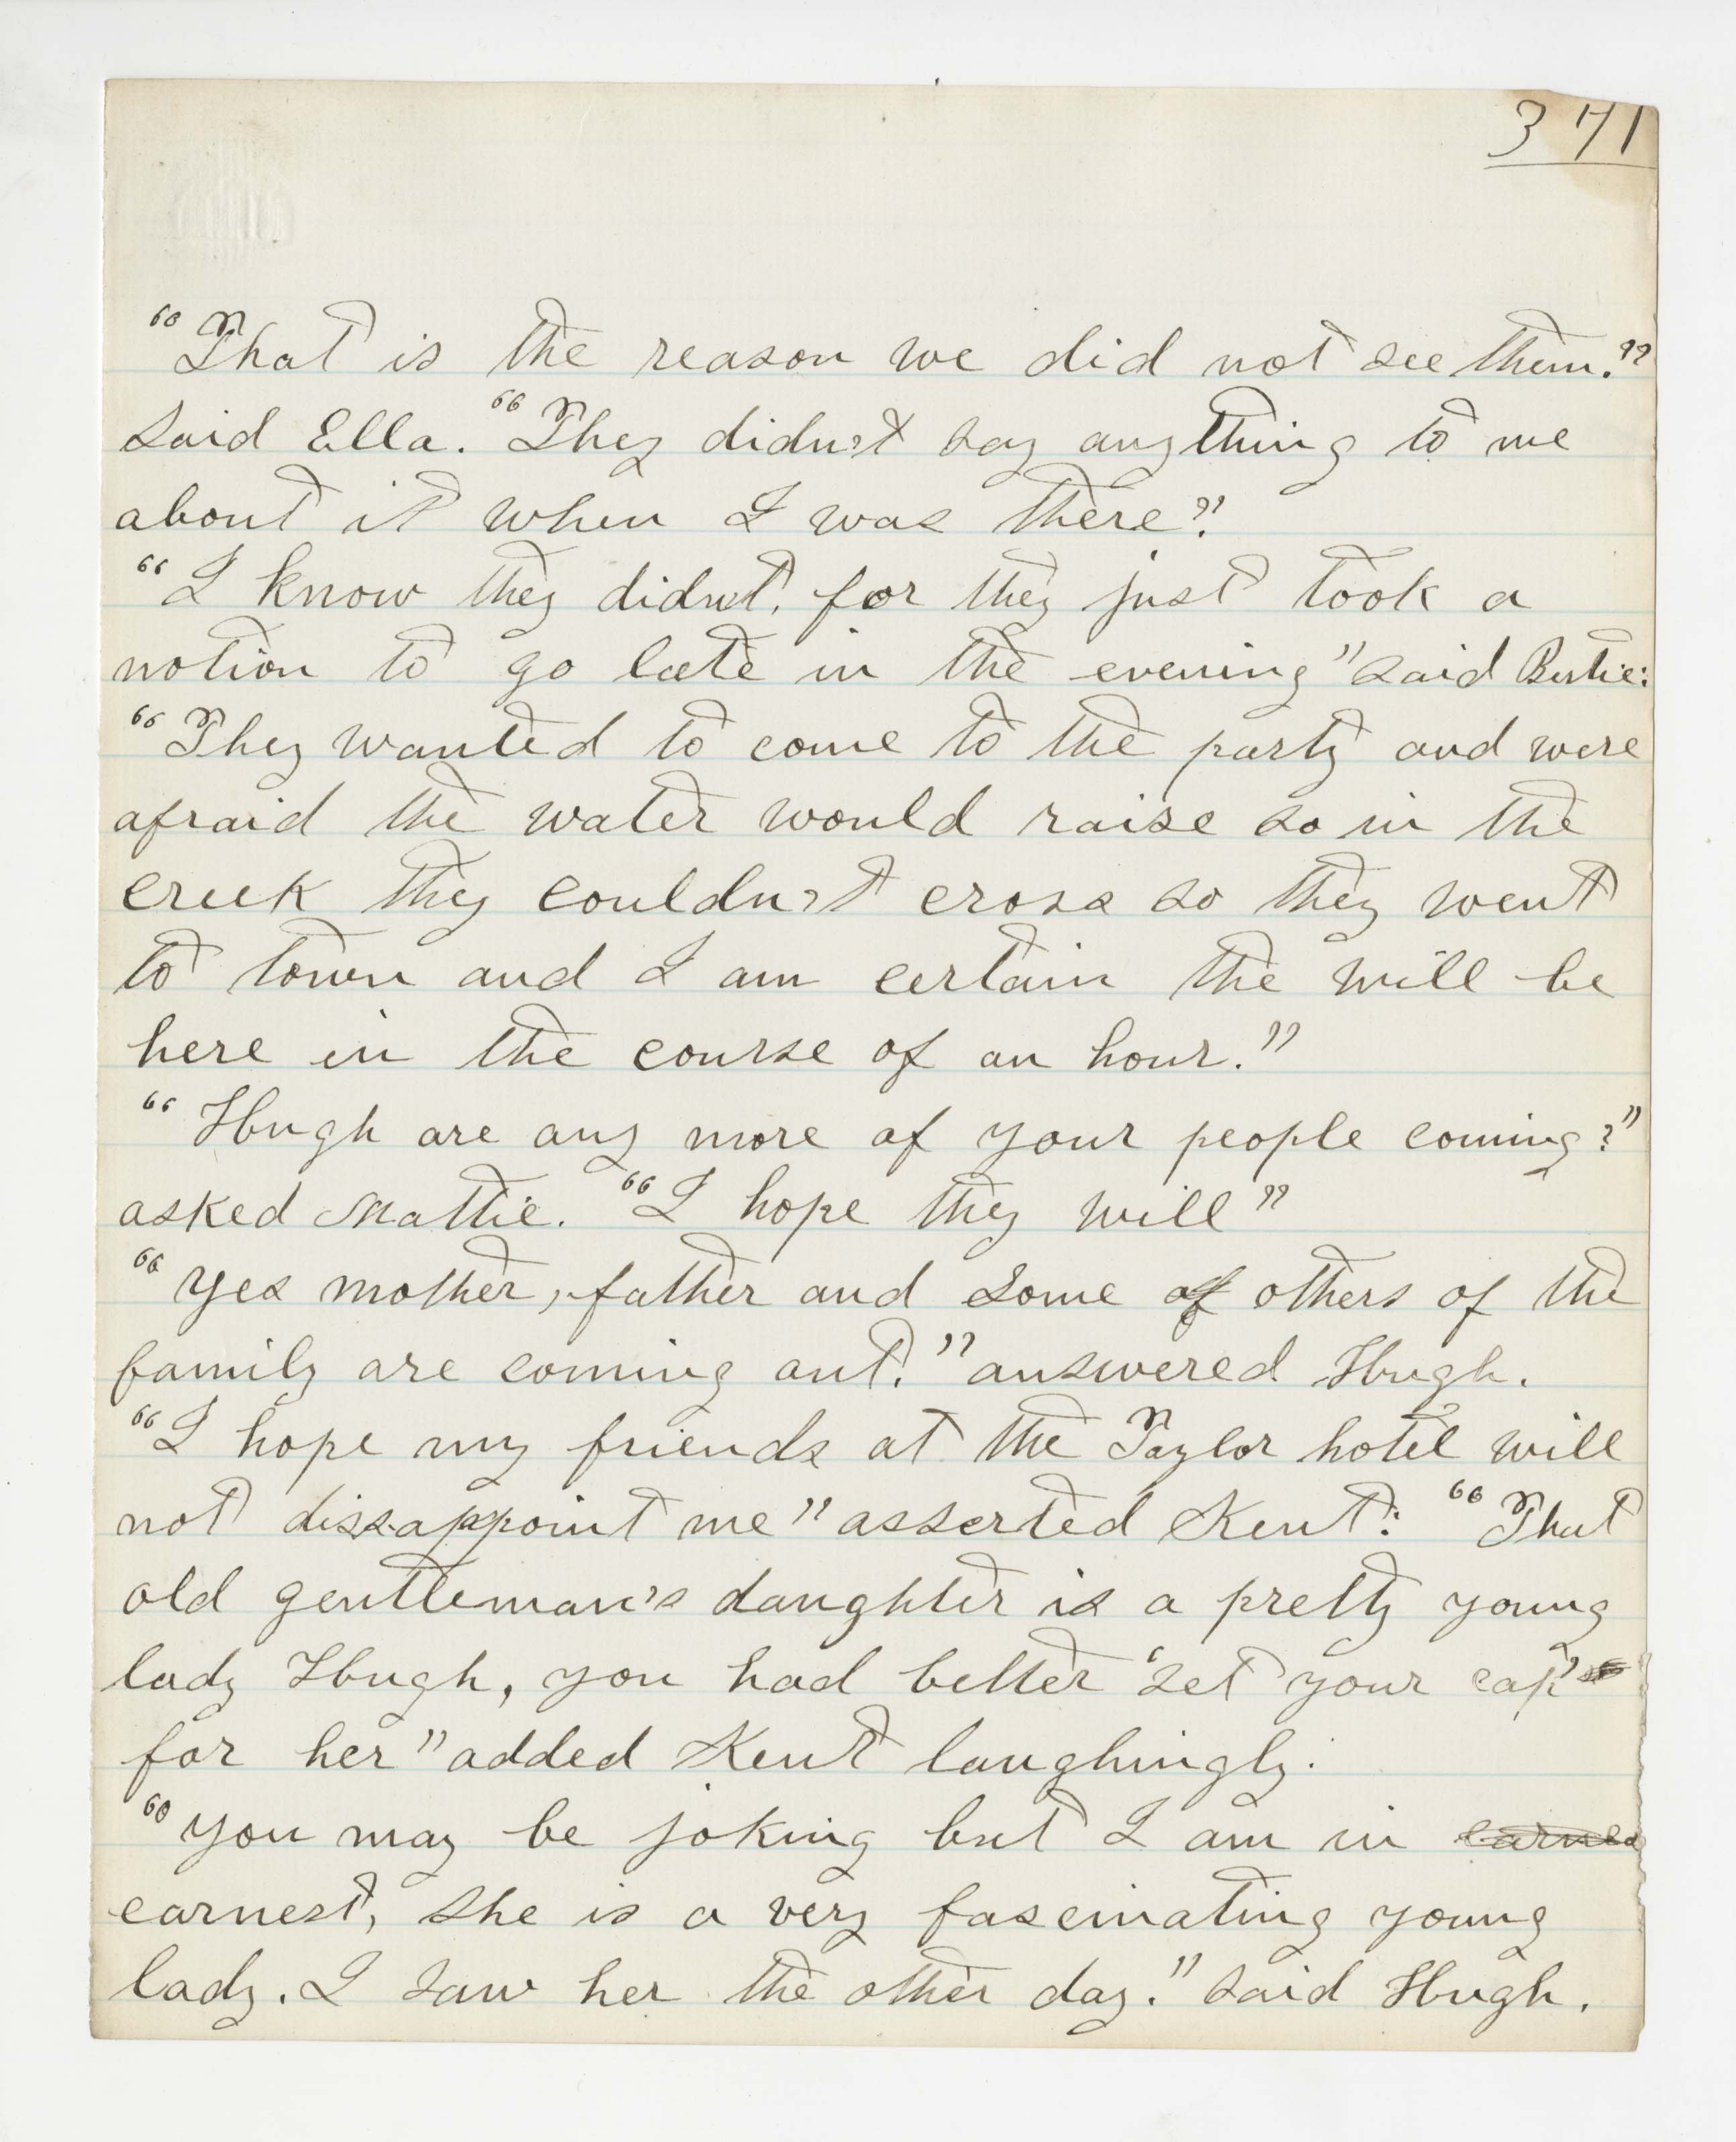 371
"That is the reason we did not see them."
said Ella. "They didn't say anything to me
about it when I was there".
"I know they didn't, for they just took a
notion to go late in the evening" said Bertie:
"They wanted to come to the party and were
afraid the water would raise so in the
creek they couldn't cross so they went
to town and I am certain the will be
here in the course of an hour."
"Hugh are any more of your people coming?"
asked Mattie. "I hope they will"
"Yes mother, father and some of others of the
family are coming out." answered Hugh.
"I hope my friends at the Taylor hotel will
not dissappoint me" asserted Kent: "That
old gentleman's daughter is a pretty young
lady Hugh, you had better 'set your cap'
for her" added Kent laughingly.
"You may be joking but I am in earnes
earnest, she is a very fascinating young
lady. I saw her the other day." said Hugh.